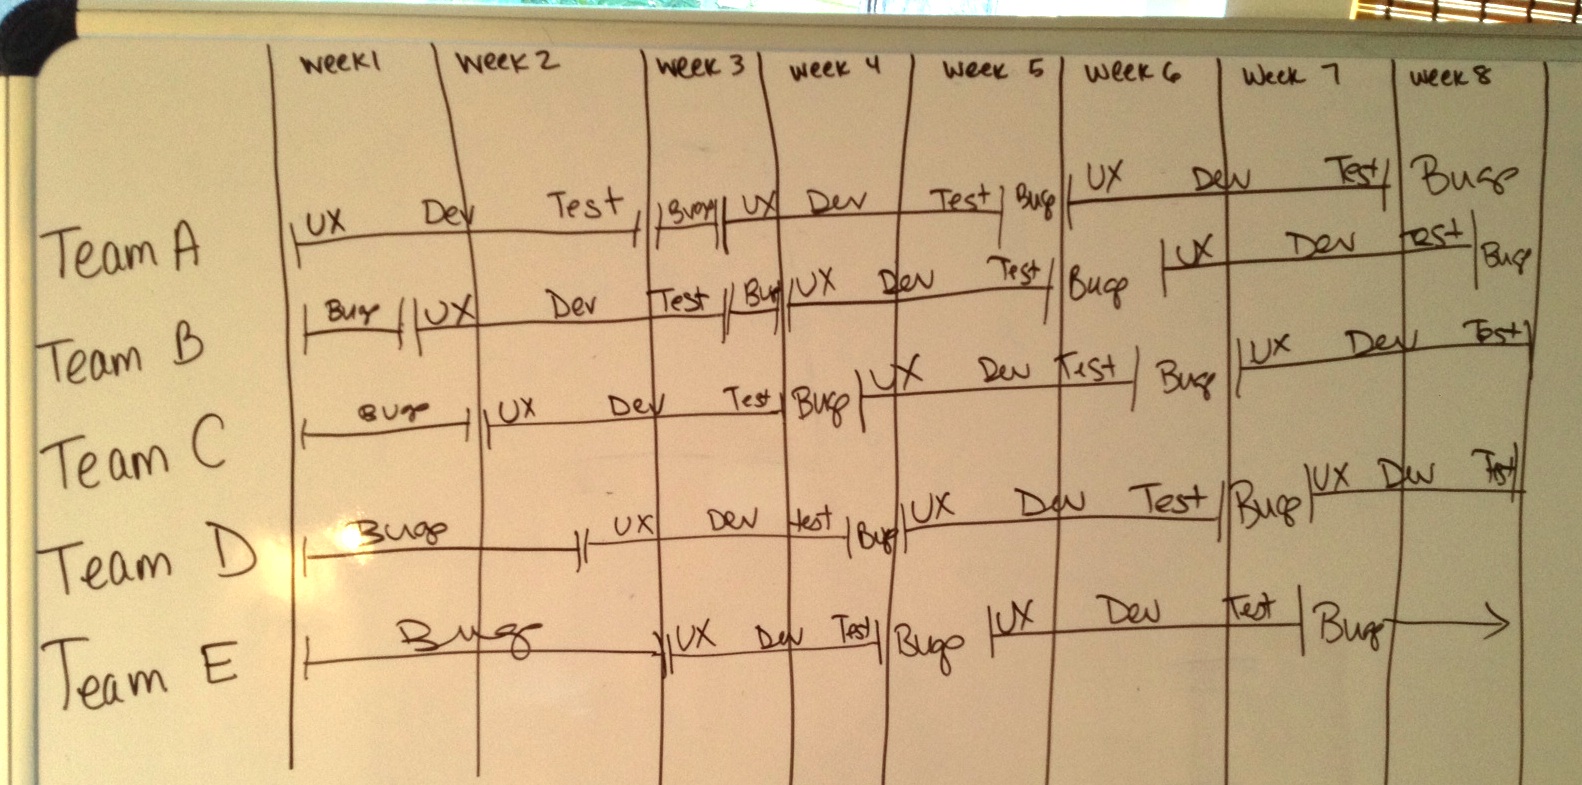 week1 week 2 week 3 week 4 week 5 week 6 week 7 week 8
Team A UX Dev Test Bugs UX Dev Test Bugs UX Dev Test Bugs
Team B Bugs UX Dev Test Bugs UX Dev Test Bugs UX Dev Test Bugs
Team C Bugs UX Dev Test Bugs UX Dev Test Bugs UX Dev Test
Team D Bugs UX Dev test Bugs UX Dev Test Bugs UX Dev Test
Team E Bugs UX Dev Test Bugs UX Dev Test Bugs